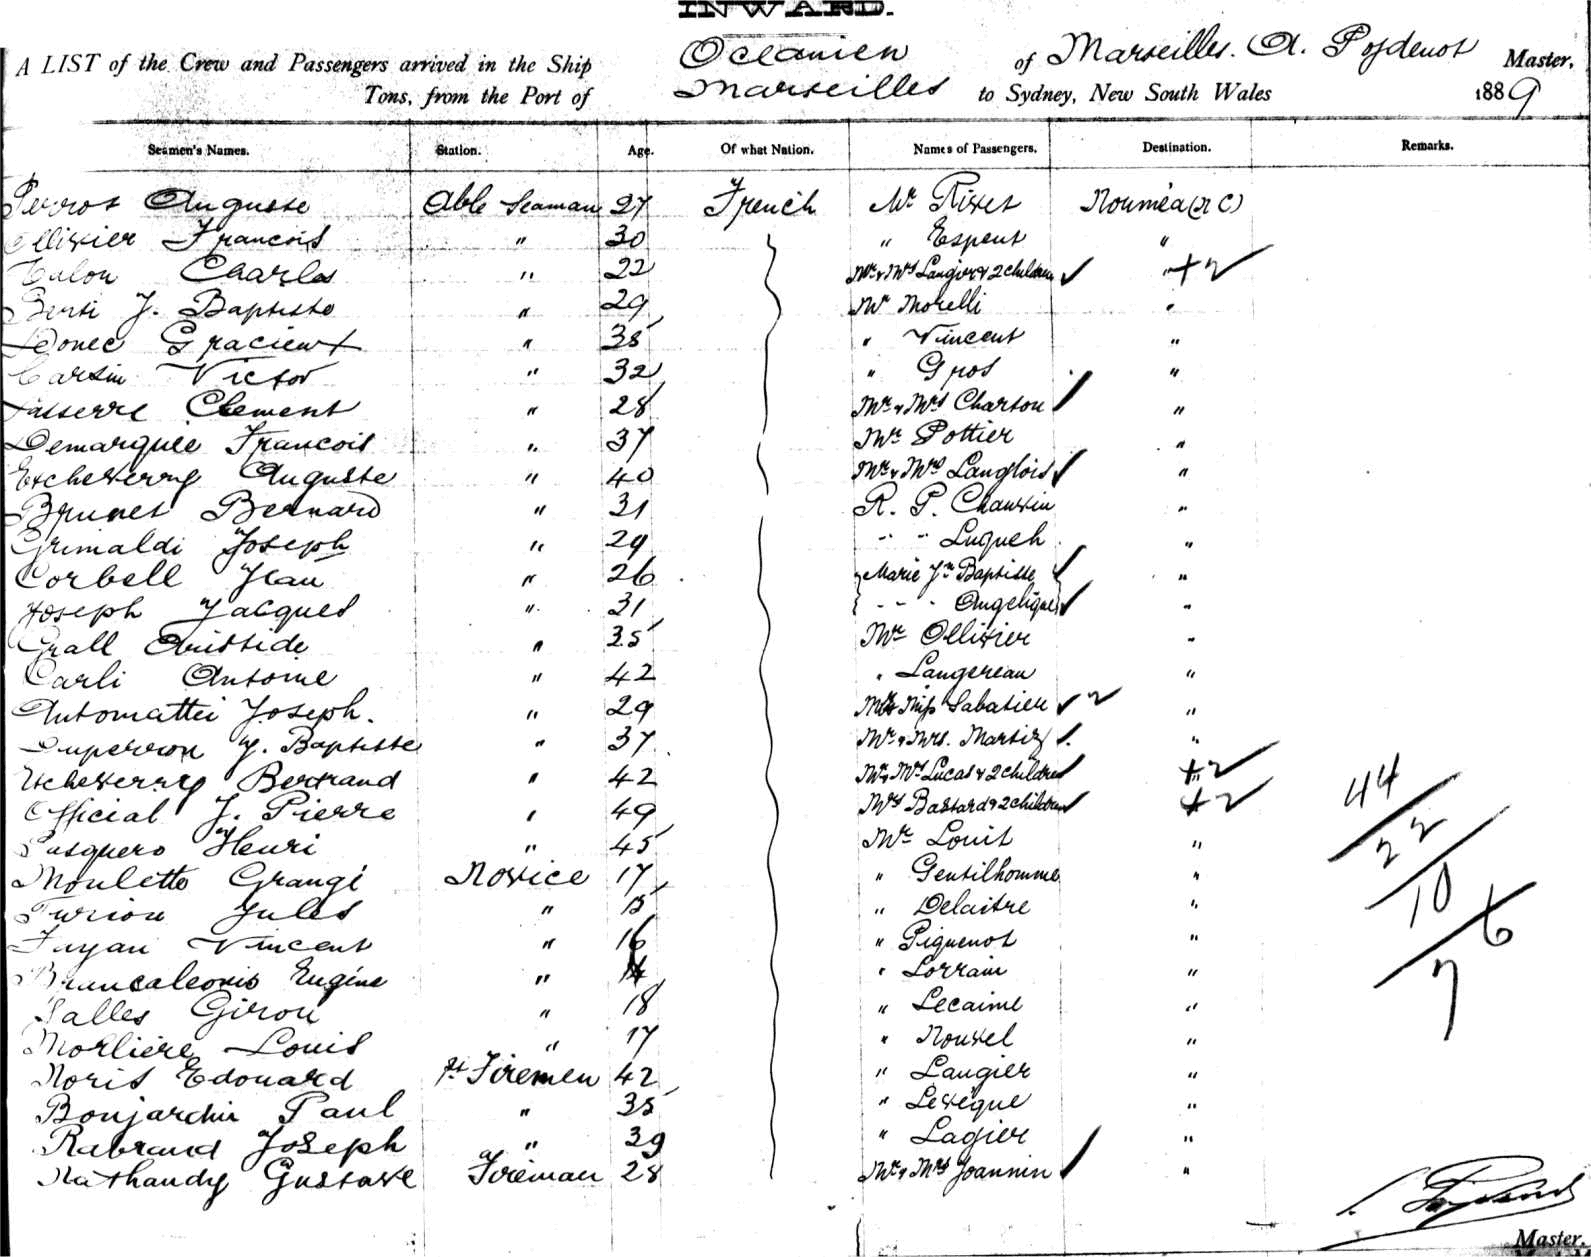 INWARD.
A LIST of the Crew and Passengers arrived in the Ship Oceanien of Marseilles. A. Master,
Tons, from the Port of Marseilles to Sydney, New South Wales 1889
Seamen's Names. Station. Age. Of what Nation. Names of Passengers. Destination. Remarks.
Perrot Auguste Able Seaman 27 French Mr Rivet Noumea (N C)
Ollivier Francois " 30 " Espent "
Talon Charles " 22 Mr & Mrs Laugier & 2 children ✓ " + 2
J. Baptiste " 29 Mr Morelli "
Ledonec Gracieux " 35 " Vincent "
Carsin Victor " 32 " Gros "
Lasserre Clement " 28 Mr & Mrs Charton ✓ "
Demarquie Francois " 37 Mr Pottier "
Etcheverry Auguste " 40 Mr & Mrs Langlois ✓ "
Brunet Bernard " 31 R. P. Chauvin "
Grimaldi Joseph " 29 " " Luqueh "
Corbell Jean " 26 Marie Jn Baptiste ✓ "
Joseph Jacques " 31 - - - Angelique ✓ "
Grall Aristide " 35 Mr Ollivier "
Carli Antoine " 42 " Langereau "
Antomattei Joseph. " 29 Miss Sabatier ✓ 2 "
Duperron J. Baptiste " 37 Mr & Mrs. Martin ✓ "
Etcheverry Bertrand " 42 Mr & Mrs Lucas & 2 children ✓ " + 2
Official J. Pierre " 49 Mrs Bastard & 2 children ✓ + 2
Pasquero Henri " 45 Mr Louit "
Mouletto Grangé Novice 17 " Gentilhomme "
Turion Jules " 15 " Delaitre "
Fayan Vincent " 16 " Piquenot "
Brancaleonis Eugéne " " Lorrain "
Salles Girou " 18 " Lecaime "
Morliére Louis " 17 " Nouvel "
Noris Edouard Firemen 42 " Laugier "
Bonjardin Paul " 35 " Levéque "
Rabraud Joseph " 39 " Lagier "
Nathandy Gustave Fireman 28 Mr & Mrs Joannin ✓ "
44
22
10
6
7
Master.